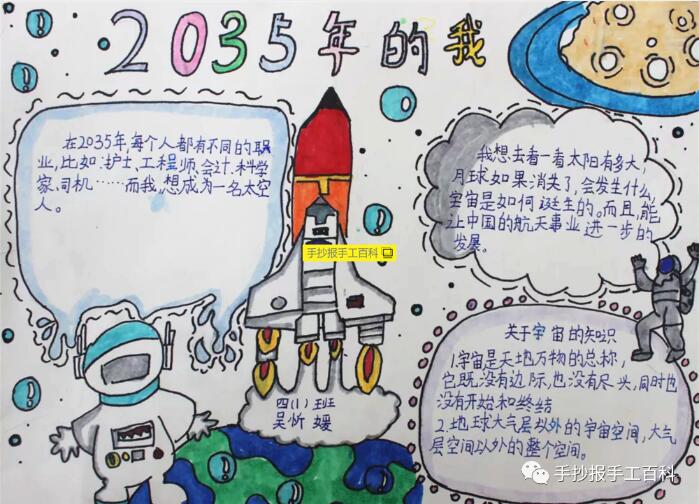 2035年的我
在2035年,每个人都有不同的职
业,比如:护士、工程师、会计、科学
家、司机……而我,想成为一名太空
人。
我想去看一看太阳有多大,
月球如果消失了,会发生什么,
宇宙是如何诞生的。而且,能
让中国的航天事业进一步的
发展。
手抄报手工百科
四(1)班
吴忻媛
关于宇宙的知识
1.宇宙是天地万物的总称,
它既没有边际,也没有尽头,同时也
没有开始和终结
2.地球大气层以外的宇宙空间,大气
层空间以外的整个空间。
手抄报手工百科